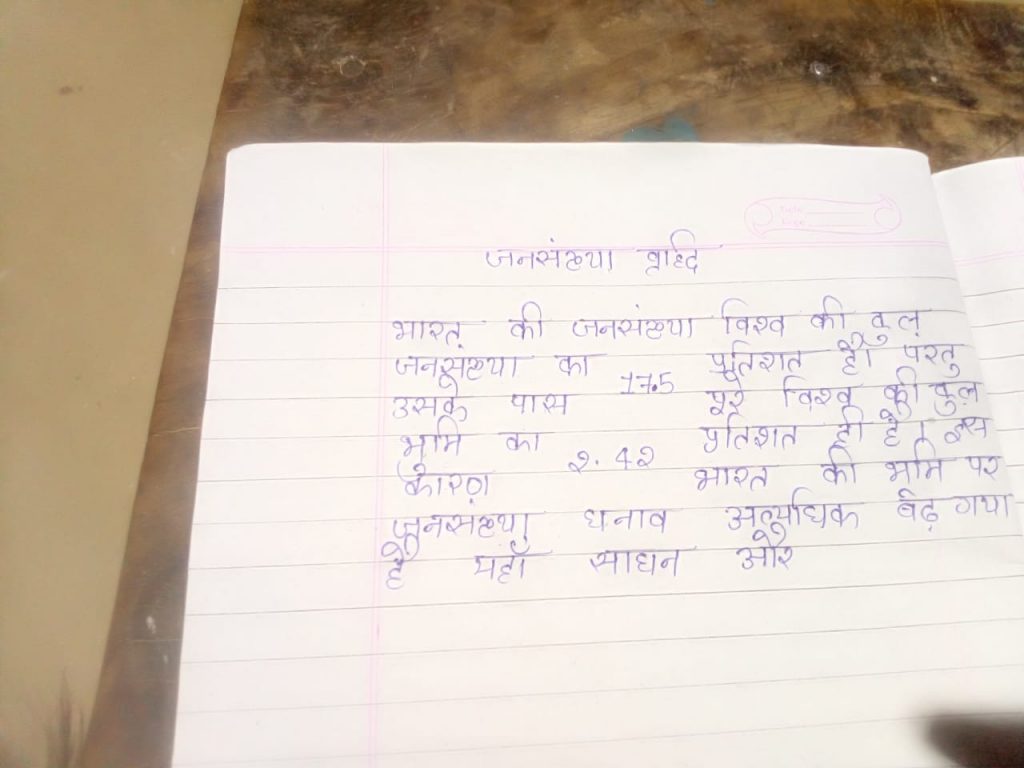 Date
Page
जनसंख्या वृद्दि
भारत की जनसंख्या विश्व की कुल
जनसंख्या का 17.5 प्रतिशत है। परंतु
उसके पास पूरे विश्व की कुल
भूमि का 2.42 प्रतिशत ही है। इस
कारण भारत की भूमि पर
जनसंख्या घनाव अत्यधिक बढ़ गया
है यहाँ साधन और